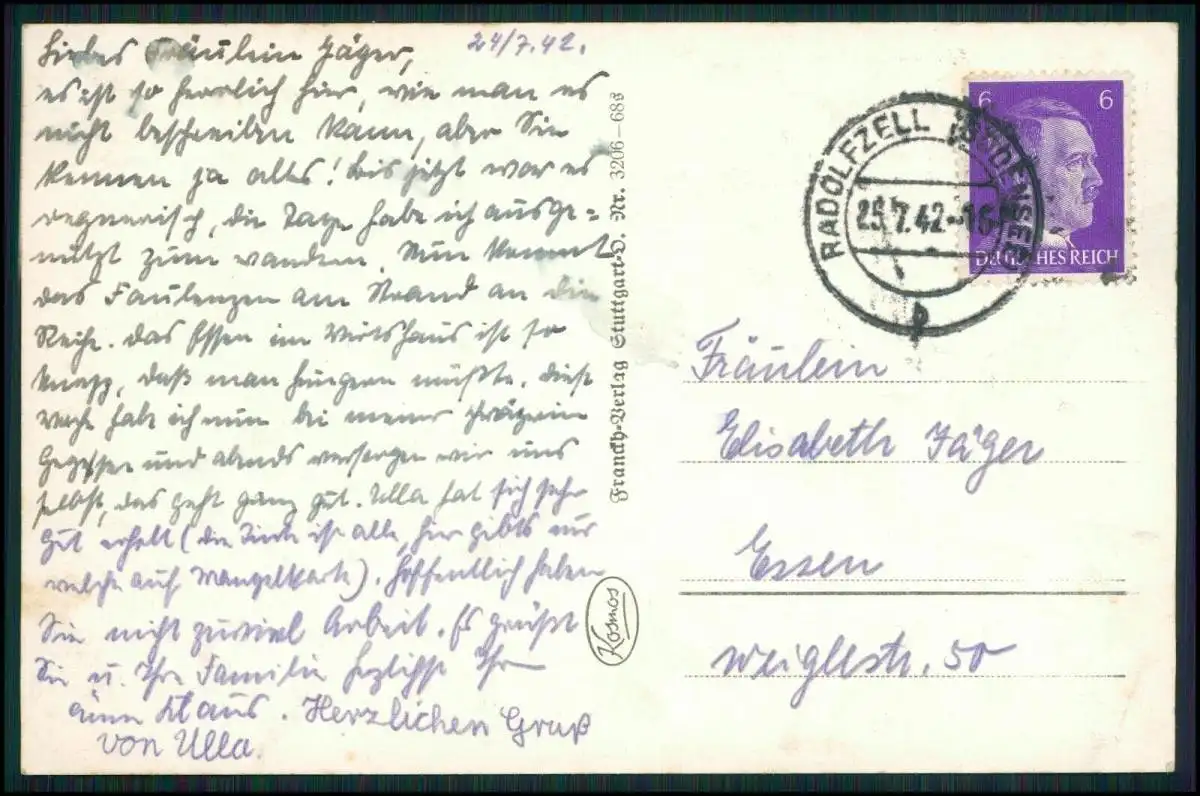 24/7.42.
Liebes Fräulein Jäger,
es ist so herrlich hier, wie man es
nicht beschreiben kann, aber Sie
kennen ja alles! Bis jetzt war es
regnerisch, die Tage habe ich ausge=
nützt zum wandern. Nun kommt
das Faulenzen am Strand an die
Reihe. Das Essen im Wirtshaus ist so
knapp, daß man hungern müßte. Diese
Woche habe ich nun bei meiner
gegessen und abends versorgen wir uns
selbst, das geht ganz gut. Ulla hat sich sehr
gut erholt (die Tinte ist alle, hier gibts nur
welche auf Mangelkarte). Hoffentlich haben
Sie nicht zuviel Arbeit. Es grüßt
Sie u. Ihre Familie herzlichst Ihre
Klaus. Herzlichen Gruß
von Ulla.
Franckh-Verlag Stuttgart-O. Nr. 3206-688
Kosmos
RADOLFZELL (BODENSEE)
25.7.42-16
b
6 6
DEUTSCHES REICH
Fräulein
Elisabeth Jäger
Essen
Weiglestr. 50